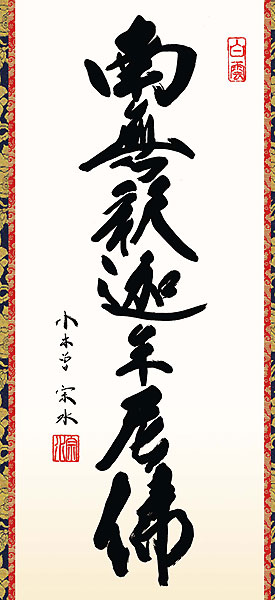 白雲
南無釈迦牟尼佛
小木曽宗水
宗水